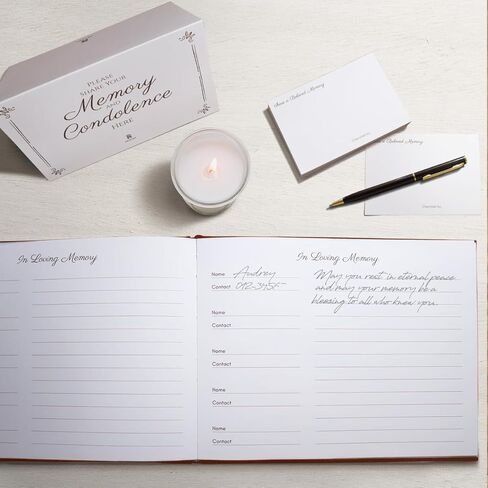 PLEASE
SHARE YOUR
Memory
AND
Condolence
HERE
Share a Beloved Memory
a Beloved Memory
In Loving Memory
In Loving Memory
Name Audrey
Contact 012-345
May you rest in eternal peace
and may your memory be a
blessing to all who knew you.
Name
Contact
Name
Contact
Name
Contact
Name
Contact